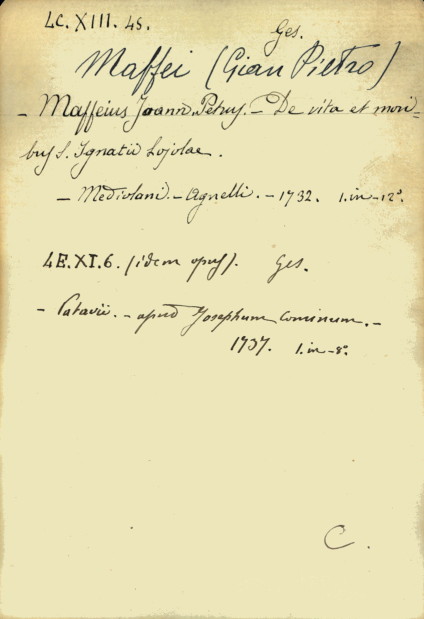 4C. XIII. 45.
Ges.
Maffei (Gian Pietro)
- Maffeius Joann. Petrus. - De vita et mori=
bus S. Ignatii Lojolae.
- Mediolani. - Agnelli. - 1732. 1. in-12°.
4E. XI. 6. (idem opus). Ges.
- Patavii. - apud Josephum Cominum. -
1737. 1. in-8°.
C.